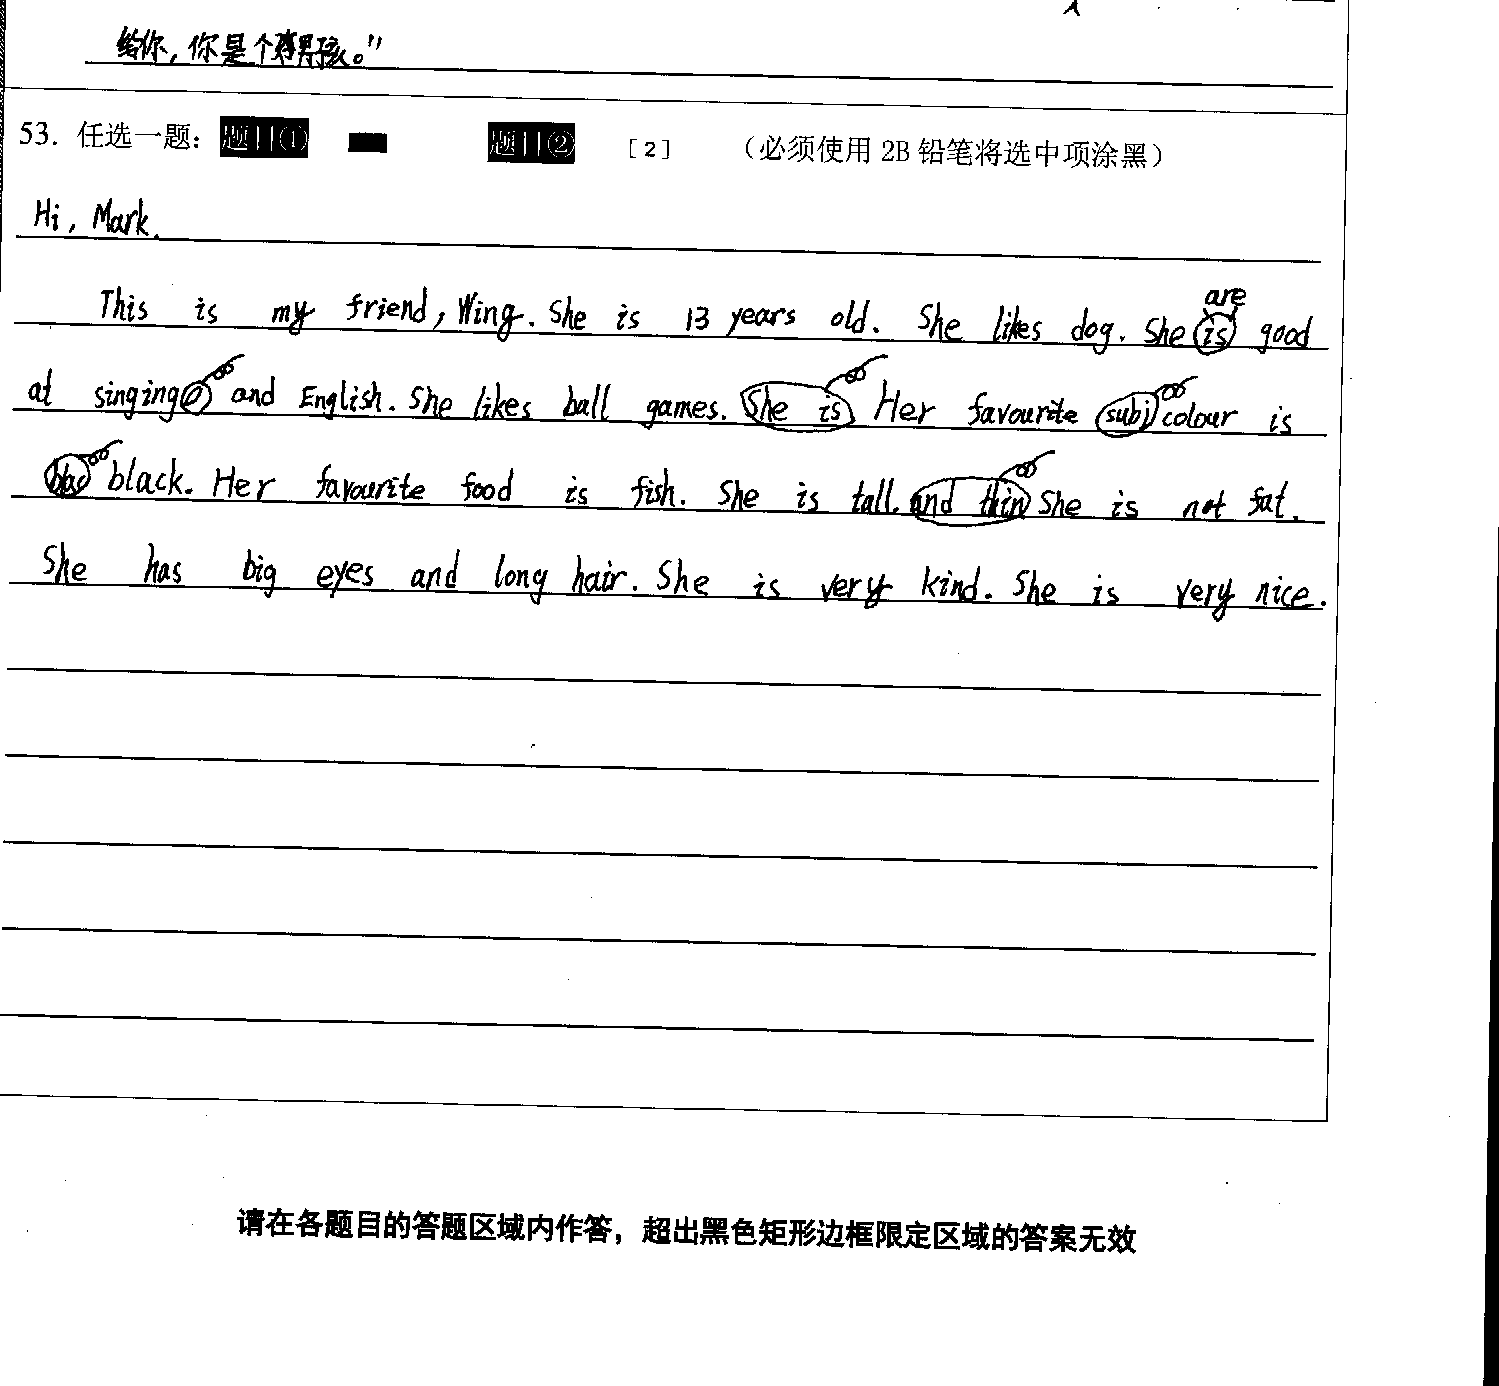 给你，你是个男孩。”
53. 任选一题： 题目① 题目② [2] （必须使用 2B 铅笔将选中项涂黑）
Hi, Mark.
This is my friend, Wing. She is 13 years old. She likes dog. She are good
at singing and English. She likes ball games. Her favourite colour is
black. Her favourite food is fish. She is tall. She is not fat.
She has big eyes and long hair. She is very kind. She is very nice.
请在各题目的答题区域内作答，超出黑色矩形边框限定区域的答案无效